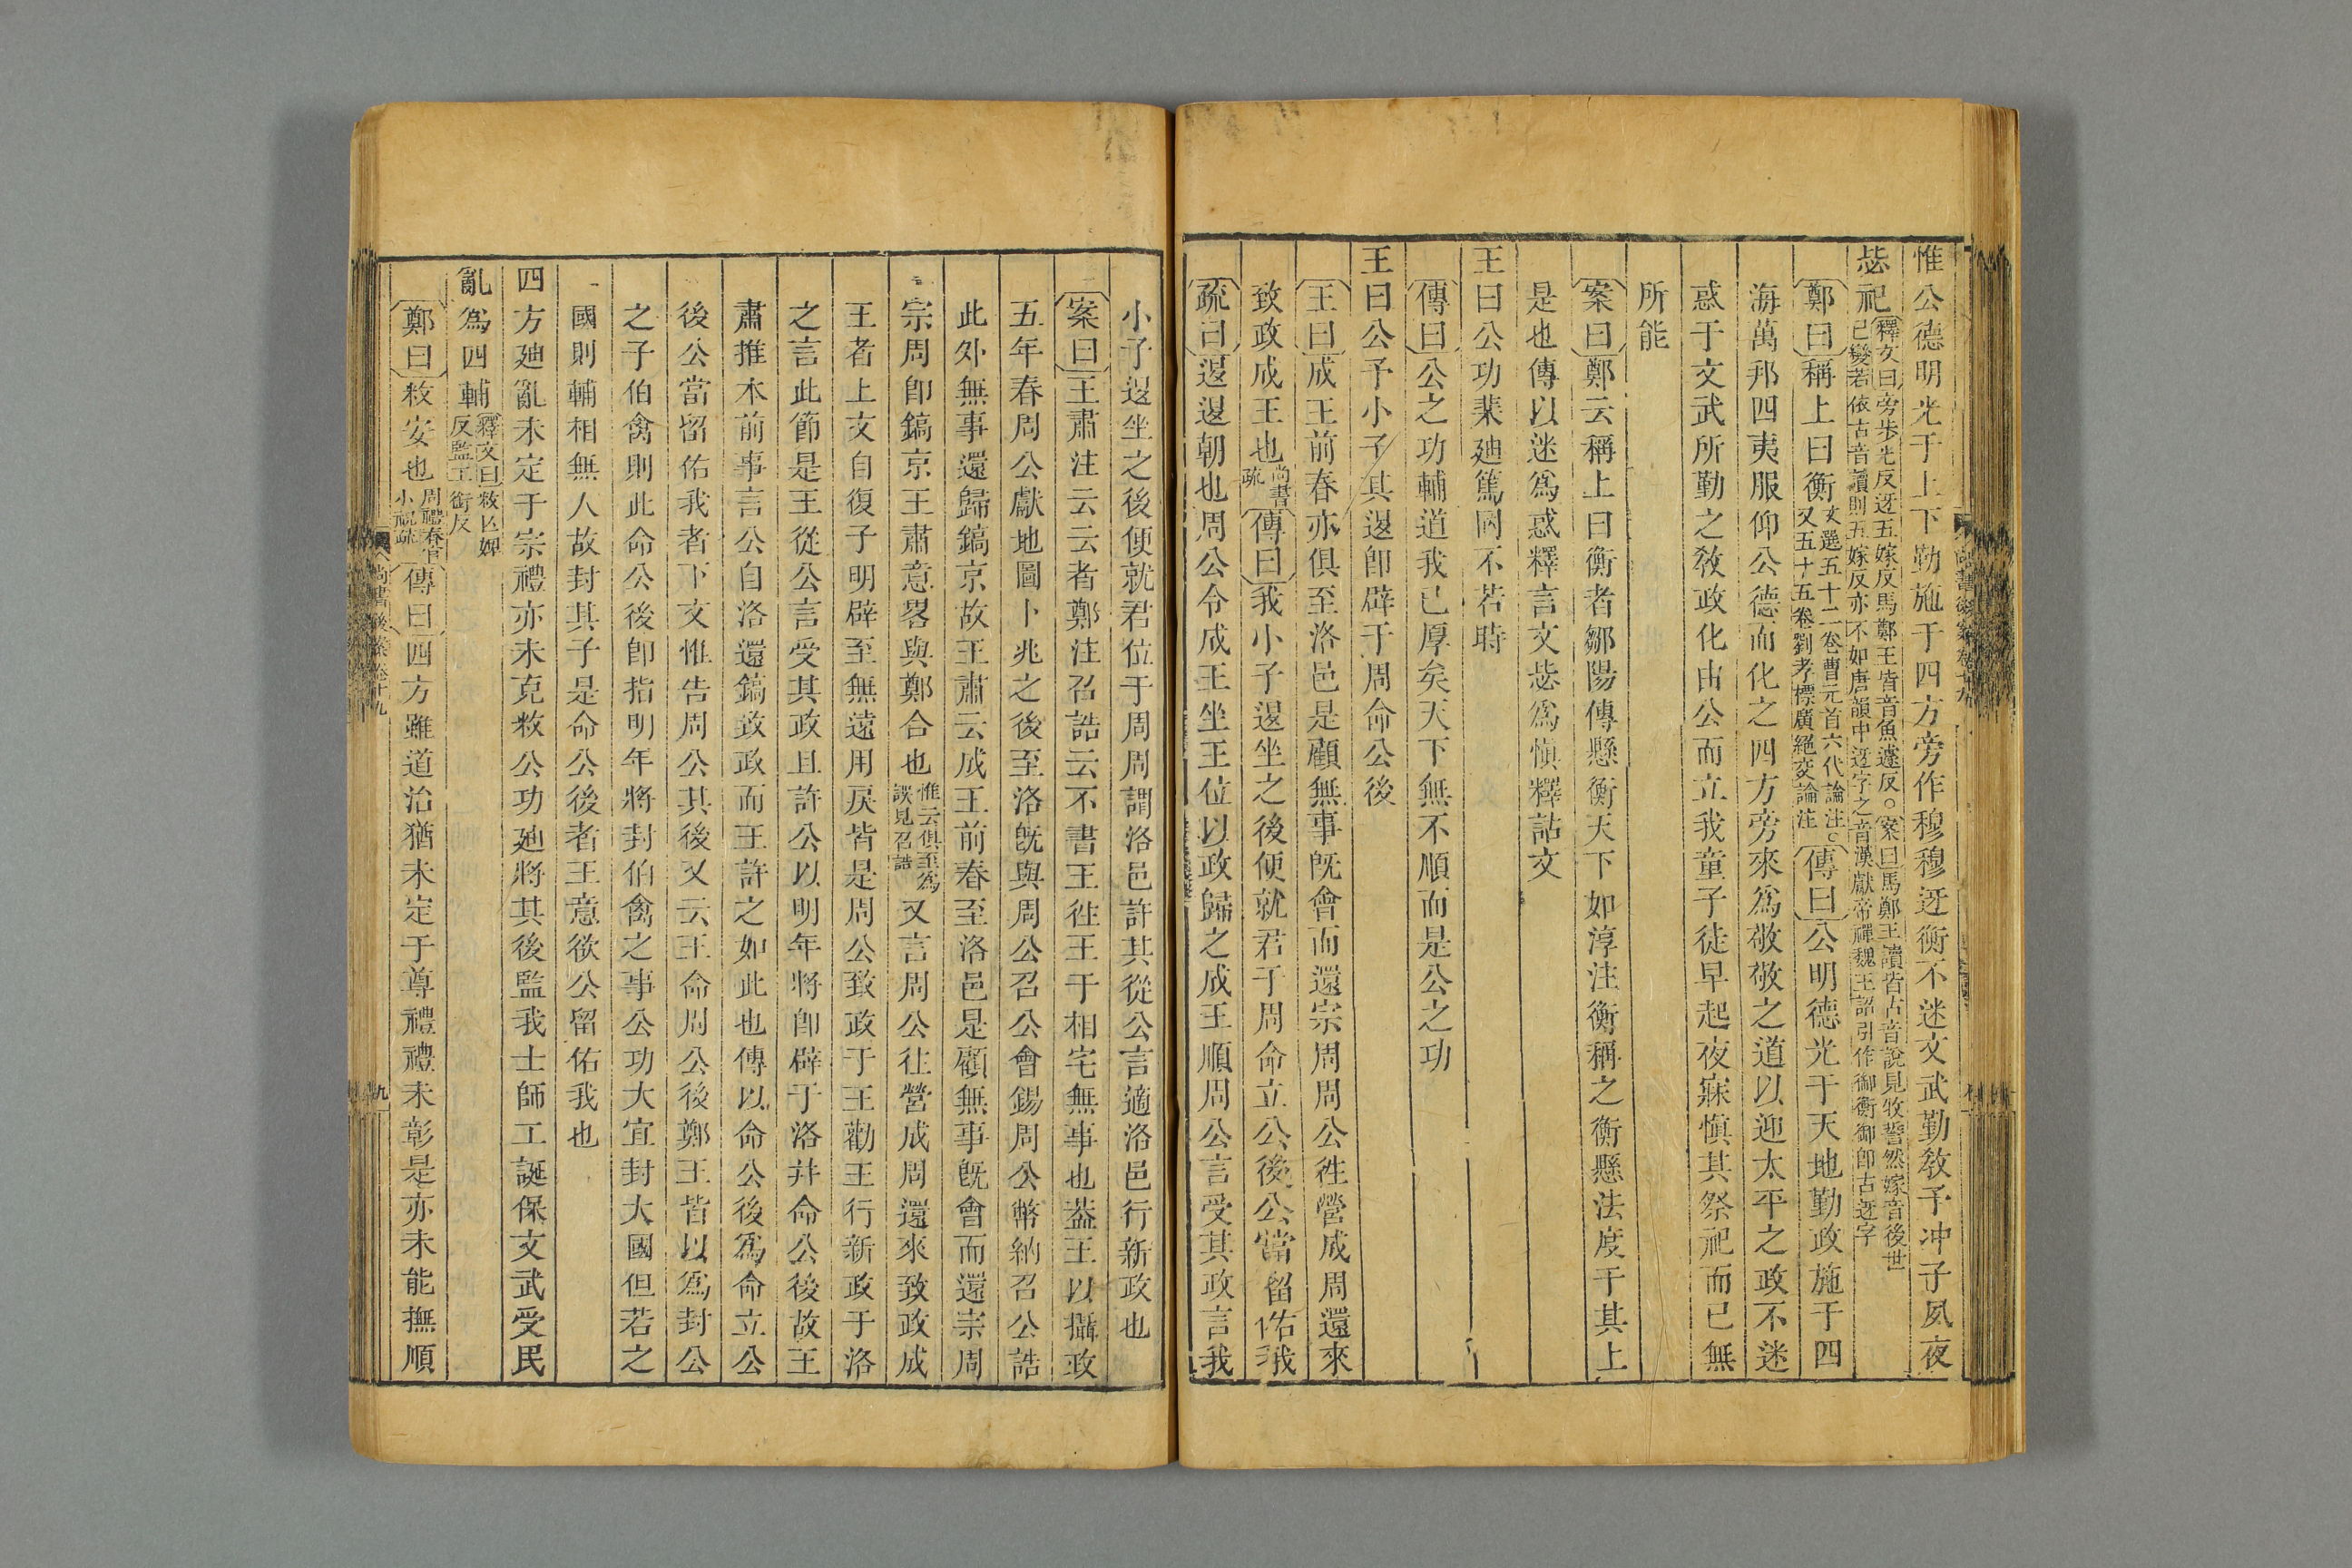 惟公德明光于上下勤施于四方旁作穆穆迓衡不迷文武勤敎予冲子夙夜
毖祀釋文曰旁步光反迓五嫁反馬鄭王皆音魚據反○案曰馬鄭王讀皆古音說見牧誓然嫁音後世
已變若依古音讀則五嫁反亦不如唐韻中迓字之音漢獻帝禪魏王詔引作御衡御卽古迓字
鄭曰稱上曰衡文選五十二卷曹元首六代論注○又五十五卷劉孝標廣絕交論注傳曰公明德光于天地勤政施于四
海萬邦四夷服仰公德而化之四方旁來爲敬敬之道以迎太平之政不迷
惑于文武所勤之敎政化由公而立我童子徒早起夜寐愼其祭祀而已無
所能
案曰鄭云稱上曰衡者鄒陽傳懸衡天下如淳注衡稱之衡懸法度于其上
是也傳以迷爲惑釋言文毖爲愼釋詁文
王曰公功棐迪篤罔不若時
傳曰公之功輔道我已厚矣天下無不順而是公之功
王曰公予小子其退卽辟于周命公後
王曰成王前春亦俱至洛邑是顧無事旣會而還宗周周公往營成周還來
致政成王也尚書疏傳曰我小子退坐之後便就君于周命立公後公當留佑我
疏曰退退朝也周公令成王坐王位以政歸之成王順周公言受其政言我
小子退坐之後便就君位于周周謂洛邑許其從公言適洛邑行新政也
案曰王肅注云云者鄭注召誥云不書王往王于相宅無事也葢王以攝政
五年春周公獻地圖卜兆之後至洛旣與周公召公會錫周公幣納召公誥
此外無事還歸鎬京故王肅云成王前春至洛邑是顧無事旣會而還宗周
宗周卽鎬京王肅意畧與鄭合也惟云俱至爲誤見召誥又言周公往營成周還來致政成
王者上文自復子明辟至無遠用戾皆是周公致政于王勸王行新政于洛
之言此節是王從公言受其政且許公以明年將卽辟于洛幷命公後故王
肅推本前事言公自洛還鎬致政而王許之如此也傳以命公後爲命立公
後公當留佑我者下文惟告周公其後又云王命周公後鄭王皆以爲封公
之子伯禽則此命公後卽指明年將封伯禽之事公功大宜封大國但若之
國則輔相無人故封其子是命公後者王意欲公留佑我也
四方迪亂未定于宗禮亦未克敉公功迪將其後監我士師工誕保文武受民
亂爲四輔釋文曰敉亾婢反監工銜反
鄭曰敉安也周禮春官小祝疏傳曰四方雖道治猶未定于尊禮禮未彰是亦未能撫順
尚書後案卷十九
九